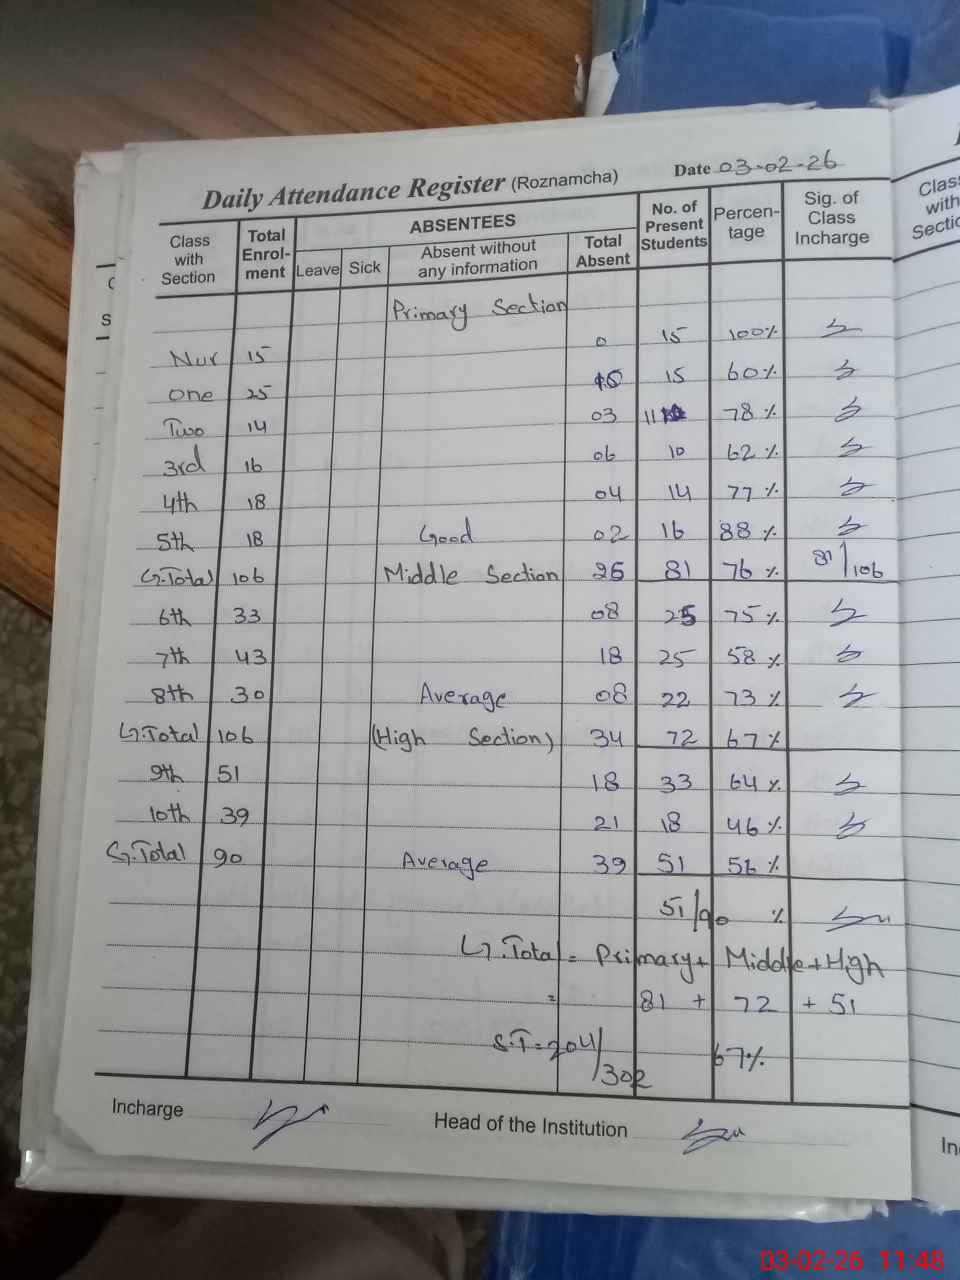 Daily Attendance Register (Roznamcha) Date 03-02-26
Class with Section Total Enrol-ment ABSENTEES Leave Sick Absent without any information Total Absent No. of Present Students Percen-tage Sig. of Class Incharge
Primary Section
Nur 15 0 15 100%
One 25 15 60%
Two 14 03 11 78 %
3rd 16 06 10 62 %
4th 18 04 14 77 %
5th 18 Good 02 16 88 %
G.Total 106 Middle Section 25 81 76 % 81/106
6th 33 08 25 75 %
7th 43 18 25 58 %
8th 30 Average 08 22 73 %
G.Total 106 (High Section) 34 72 67 %
9th 51 18 33 64 %
10th 39 21 18 46 %
G.Total 90 Average 39 51 56 %
51/90 %
G.Total = Primary + Middle + High
= 81 + 72 + 51
S.T = 204/302 67%
Incharge Head of the Institution
Class
with
Sectio
In
03-02-26 11:48